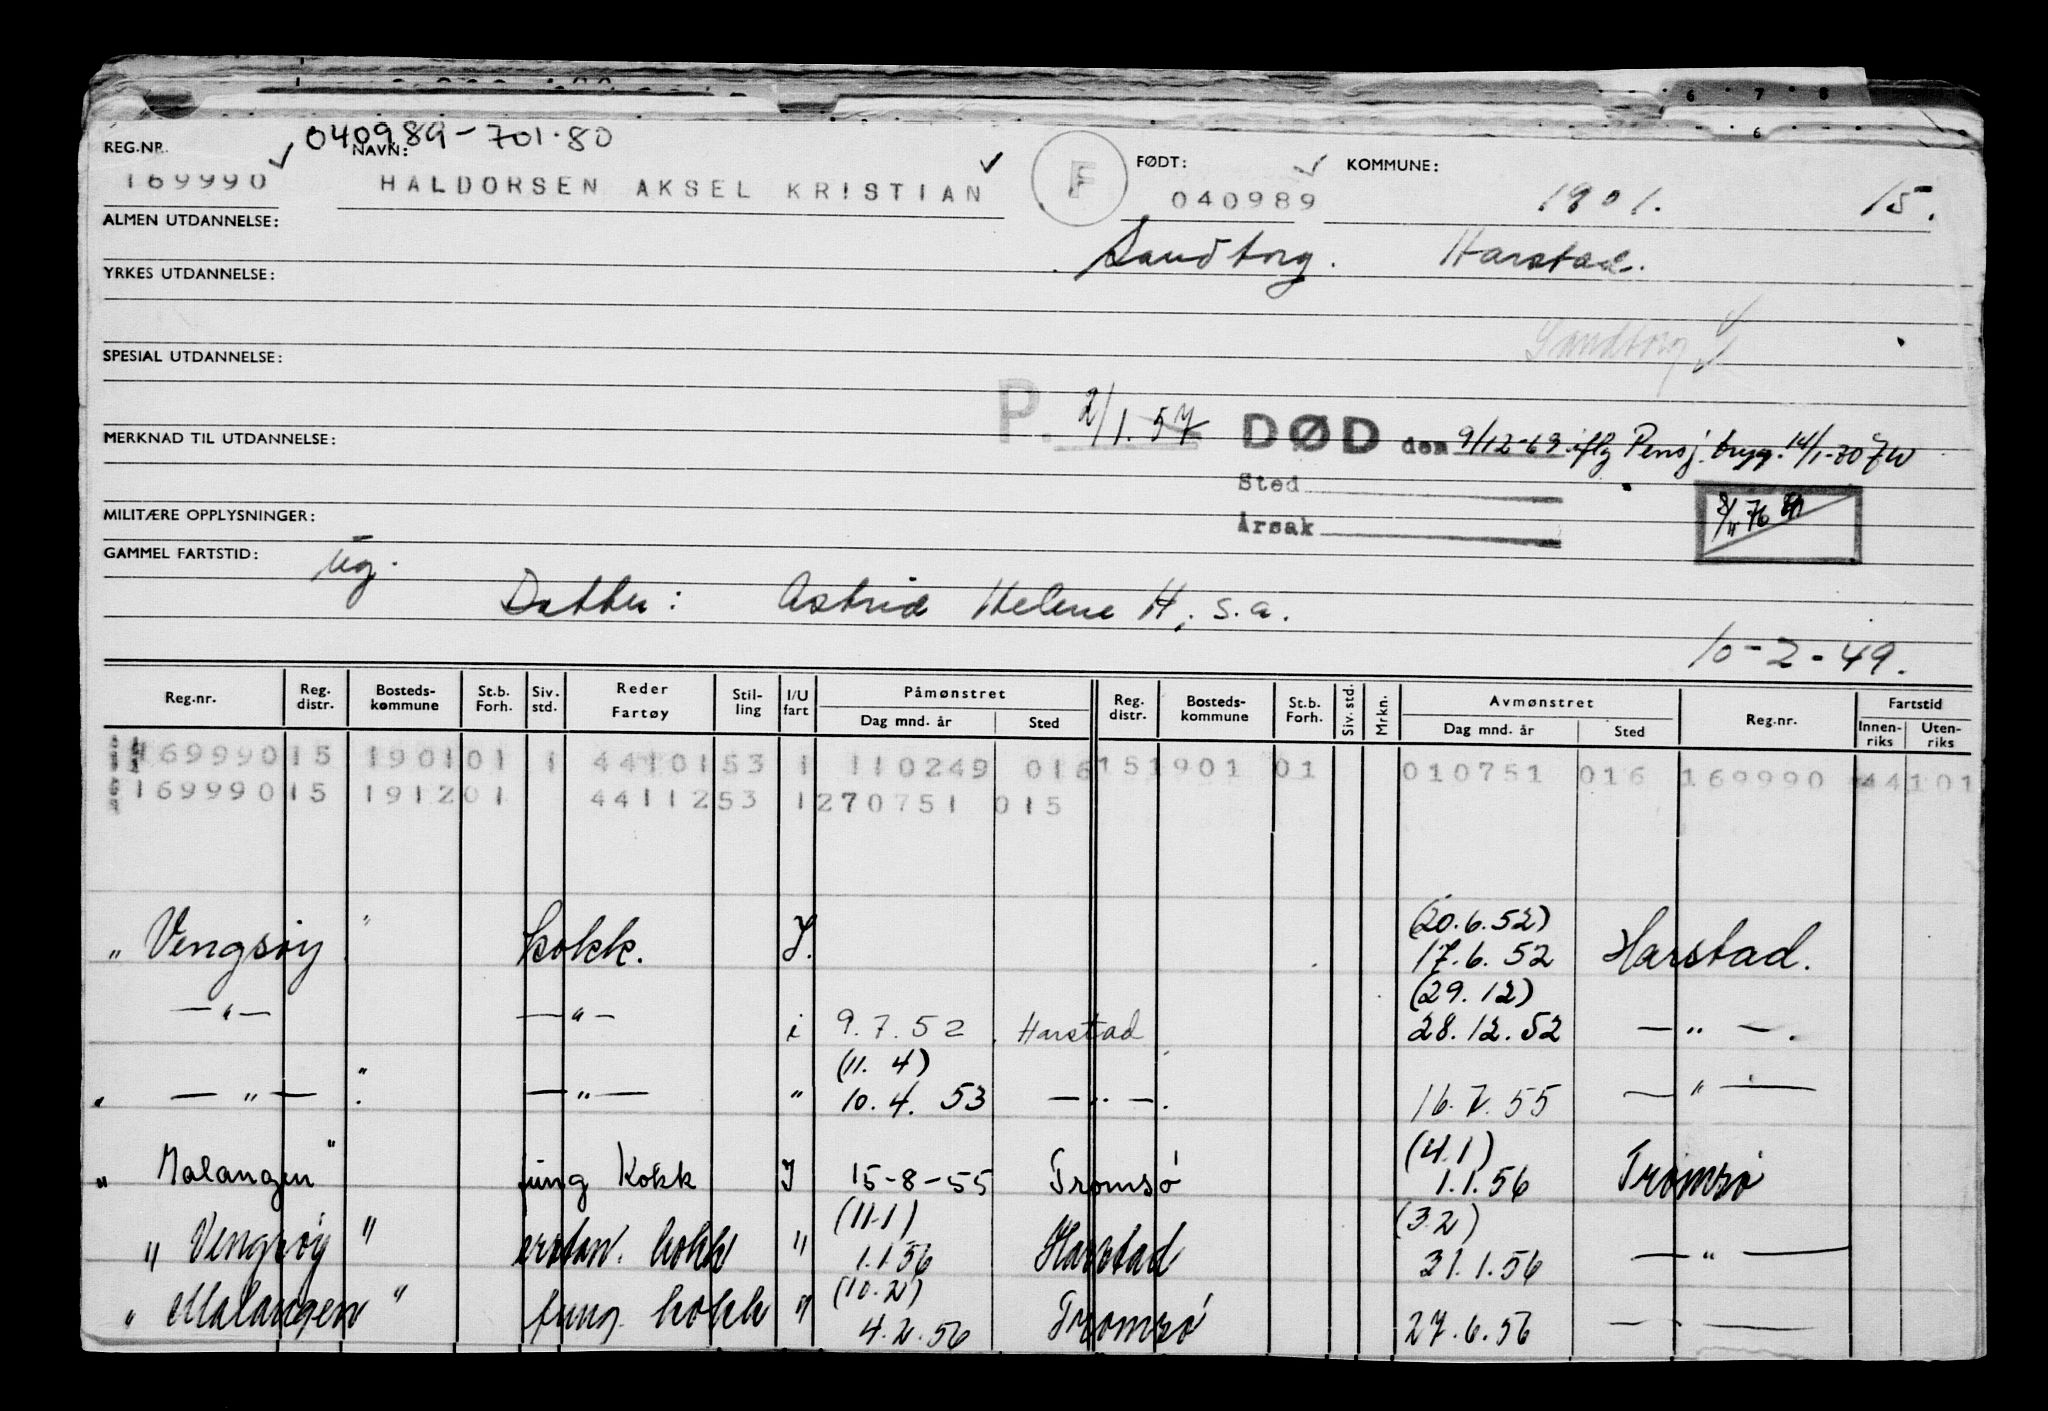 040989-701.80
REG.NR. NAVN: FØDT: KOMMUNE:
169990 HALDORSEN AKSEL KRISTIAN F 040989 1901. 15.
ALMEN UTDANNELSE: Sandtorg. Harstad.
YRKES UTDANNELSE:
Sandtorg
SPESIAL UTDANNELSE:
P. 2/1.57 DØD den 9/12-69 iflg Pensj.tryg. 14/1-70
MERKNAD TIL UTDANNELSE:
Sted
MILITÆRE OPPLYSNINGER: Årsak
GAMMEL FARTSTID: ug.
Datter: Astrid Helene H, s.a.
10-2-49.
Reg.nr. Reg. distr. Bosteds-kommune St.b. Forh. Siv. std. Reder Fartøy Stil-ling I/U fart Påmønstret Dag mnd. år Sted Reg. distr. Bosteds-kommune St.b. Forh. Siv. std. Mrkn. Avmønstret Dag mnd. år Sted Reg.nr. Fartstid Innen-riks Uten-riks
169990 15 1901 01 1 4410153 1 110249 016 15 1901 01 010751 016 169990 44101
169990 15 1912 01 4411253 1 270751 015
(20.6.52)
" Vengsøy " kokk. I. 17.6.52 Harstad.
(29.12)
—"— —"— i 9.7.52 Harstad 28.12.52 —"—.
(11.4)
—"— " —"— " 10.4.53 —"—. 16.7.55 —"—
(4.1)
" Malangen " fung Kokk I 15-8-55 Tromsø 1.1.56 Tromsø
(11.1) (3.2)
" Vengsøy " erstan. kokk " 1.1.56 Harstad 31.1.56 —"—
(10.2)
" Malangen " fung. kokk " 4.2.56 Tromsø 27.6.56 —"—